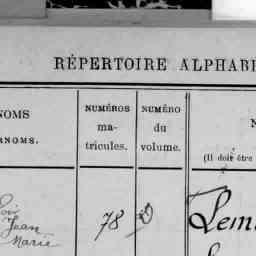 RÉPERTOIRE ALPHABÉ
NOMS
RNOMS.
NUMÉROS
ma-
tricules.
NUMÉRO
du
volume.
N
(Il doit être
Jean
Marie
78
Lem